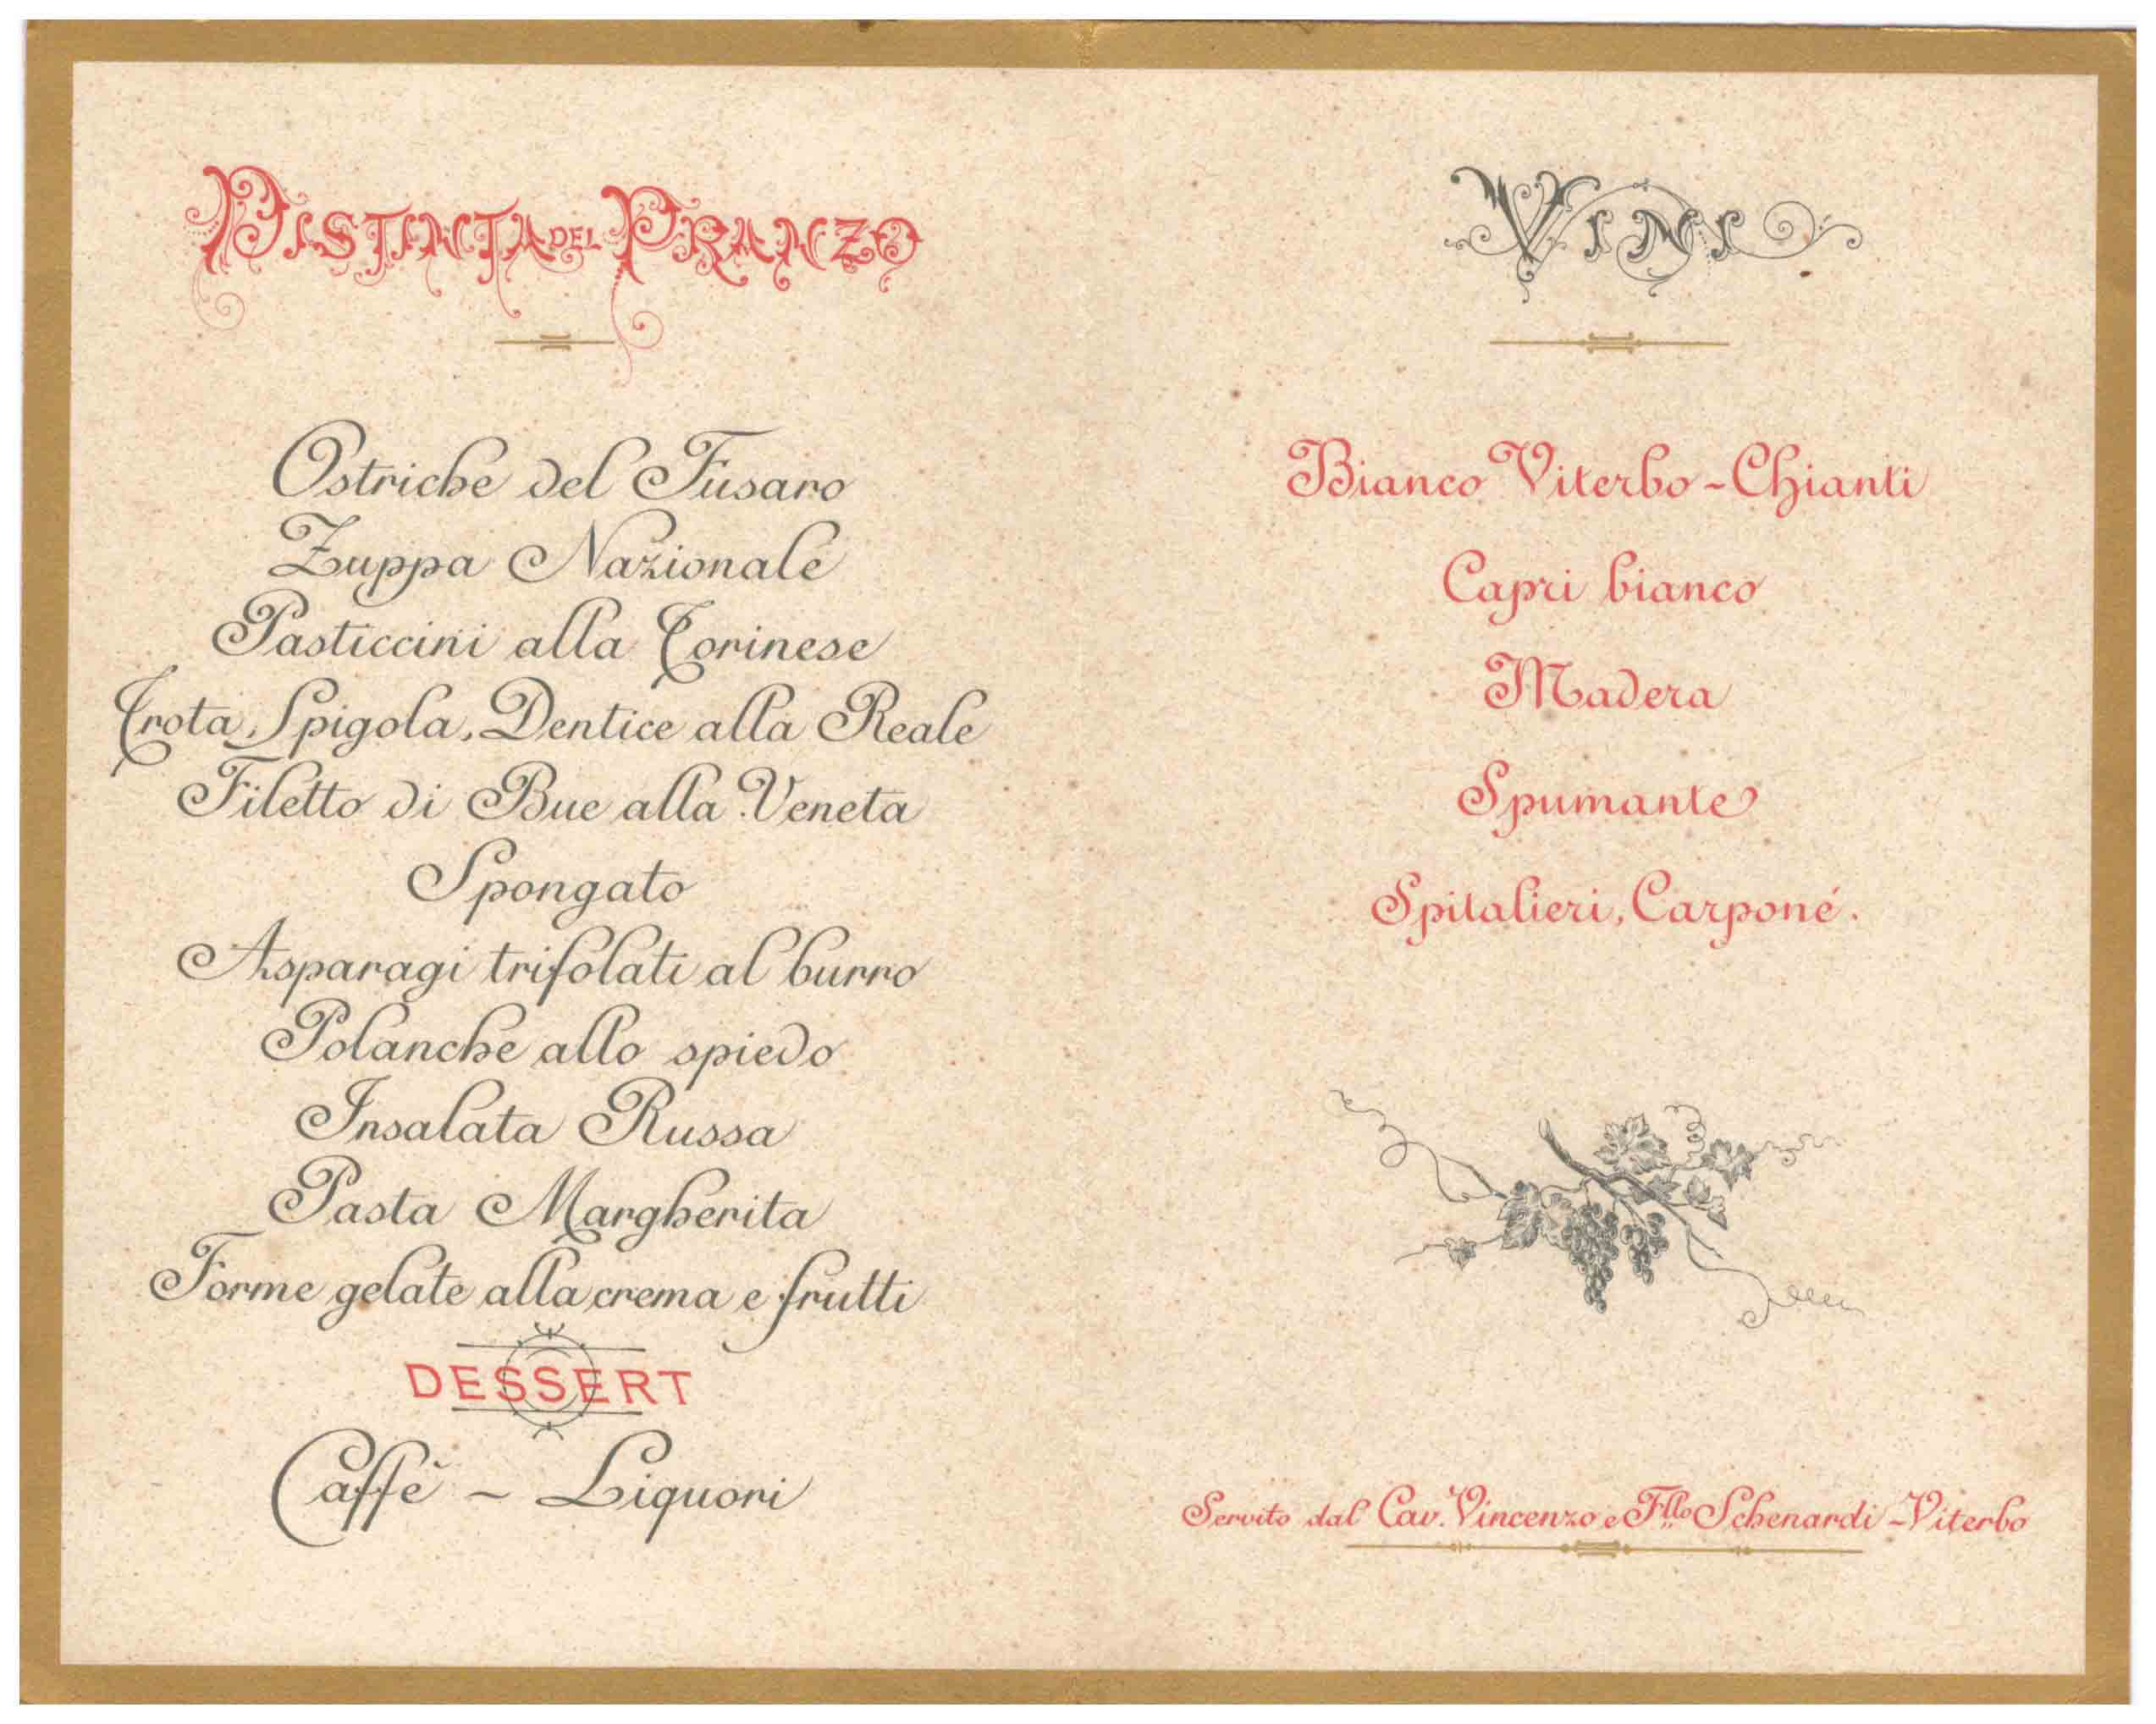 DISTINTA DEL PRANZO
Ostriche del Fusaro
Zuppa Nazionale
Pasticcini alla Torinese
Trota, Spigola, Dentice alla Reale
Filetto di Bue alla Veneta
Spongato
Asparagi trifolati al burro
Polanche allo spiedo
Insalata Russa
Pasta Margherita
Forme gelate alla crema e frutti
DESSERT
Caffè - Liquori
VINI
Bianco Viterbo - Chianti
Capri bianco
Madera
Spumante
Spitalieri, Carponé.
Servito dal Cav. Vincenzo e Fllo Schenardi - Viterbo